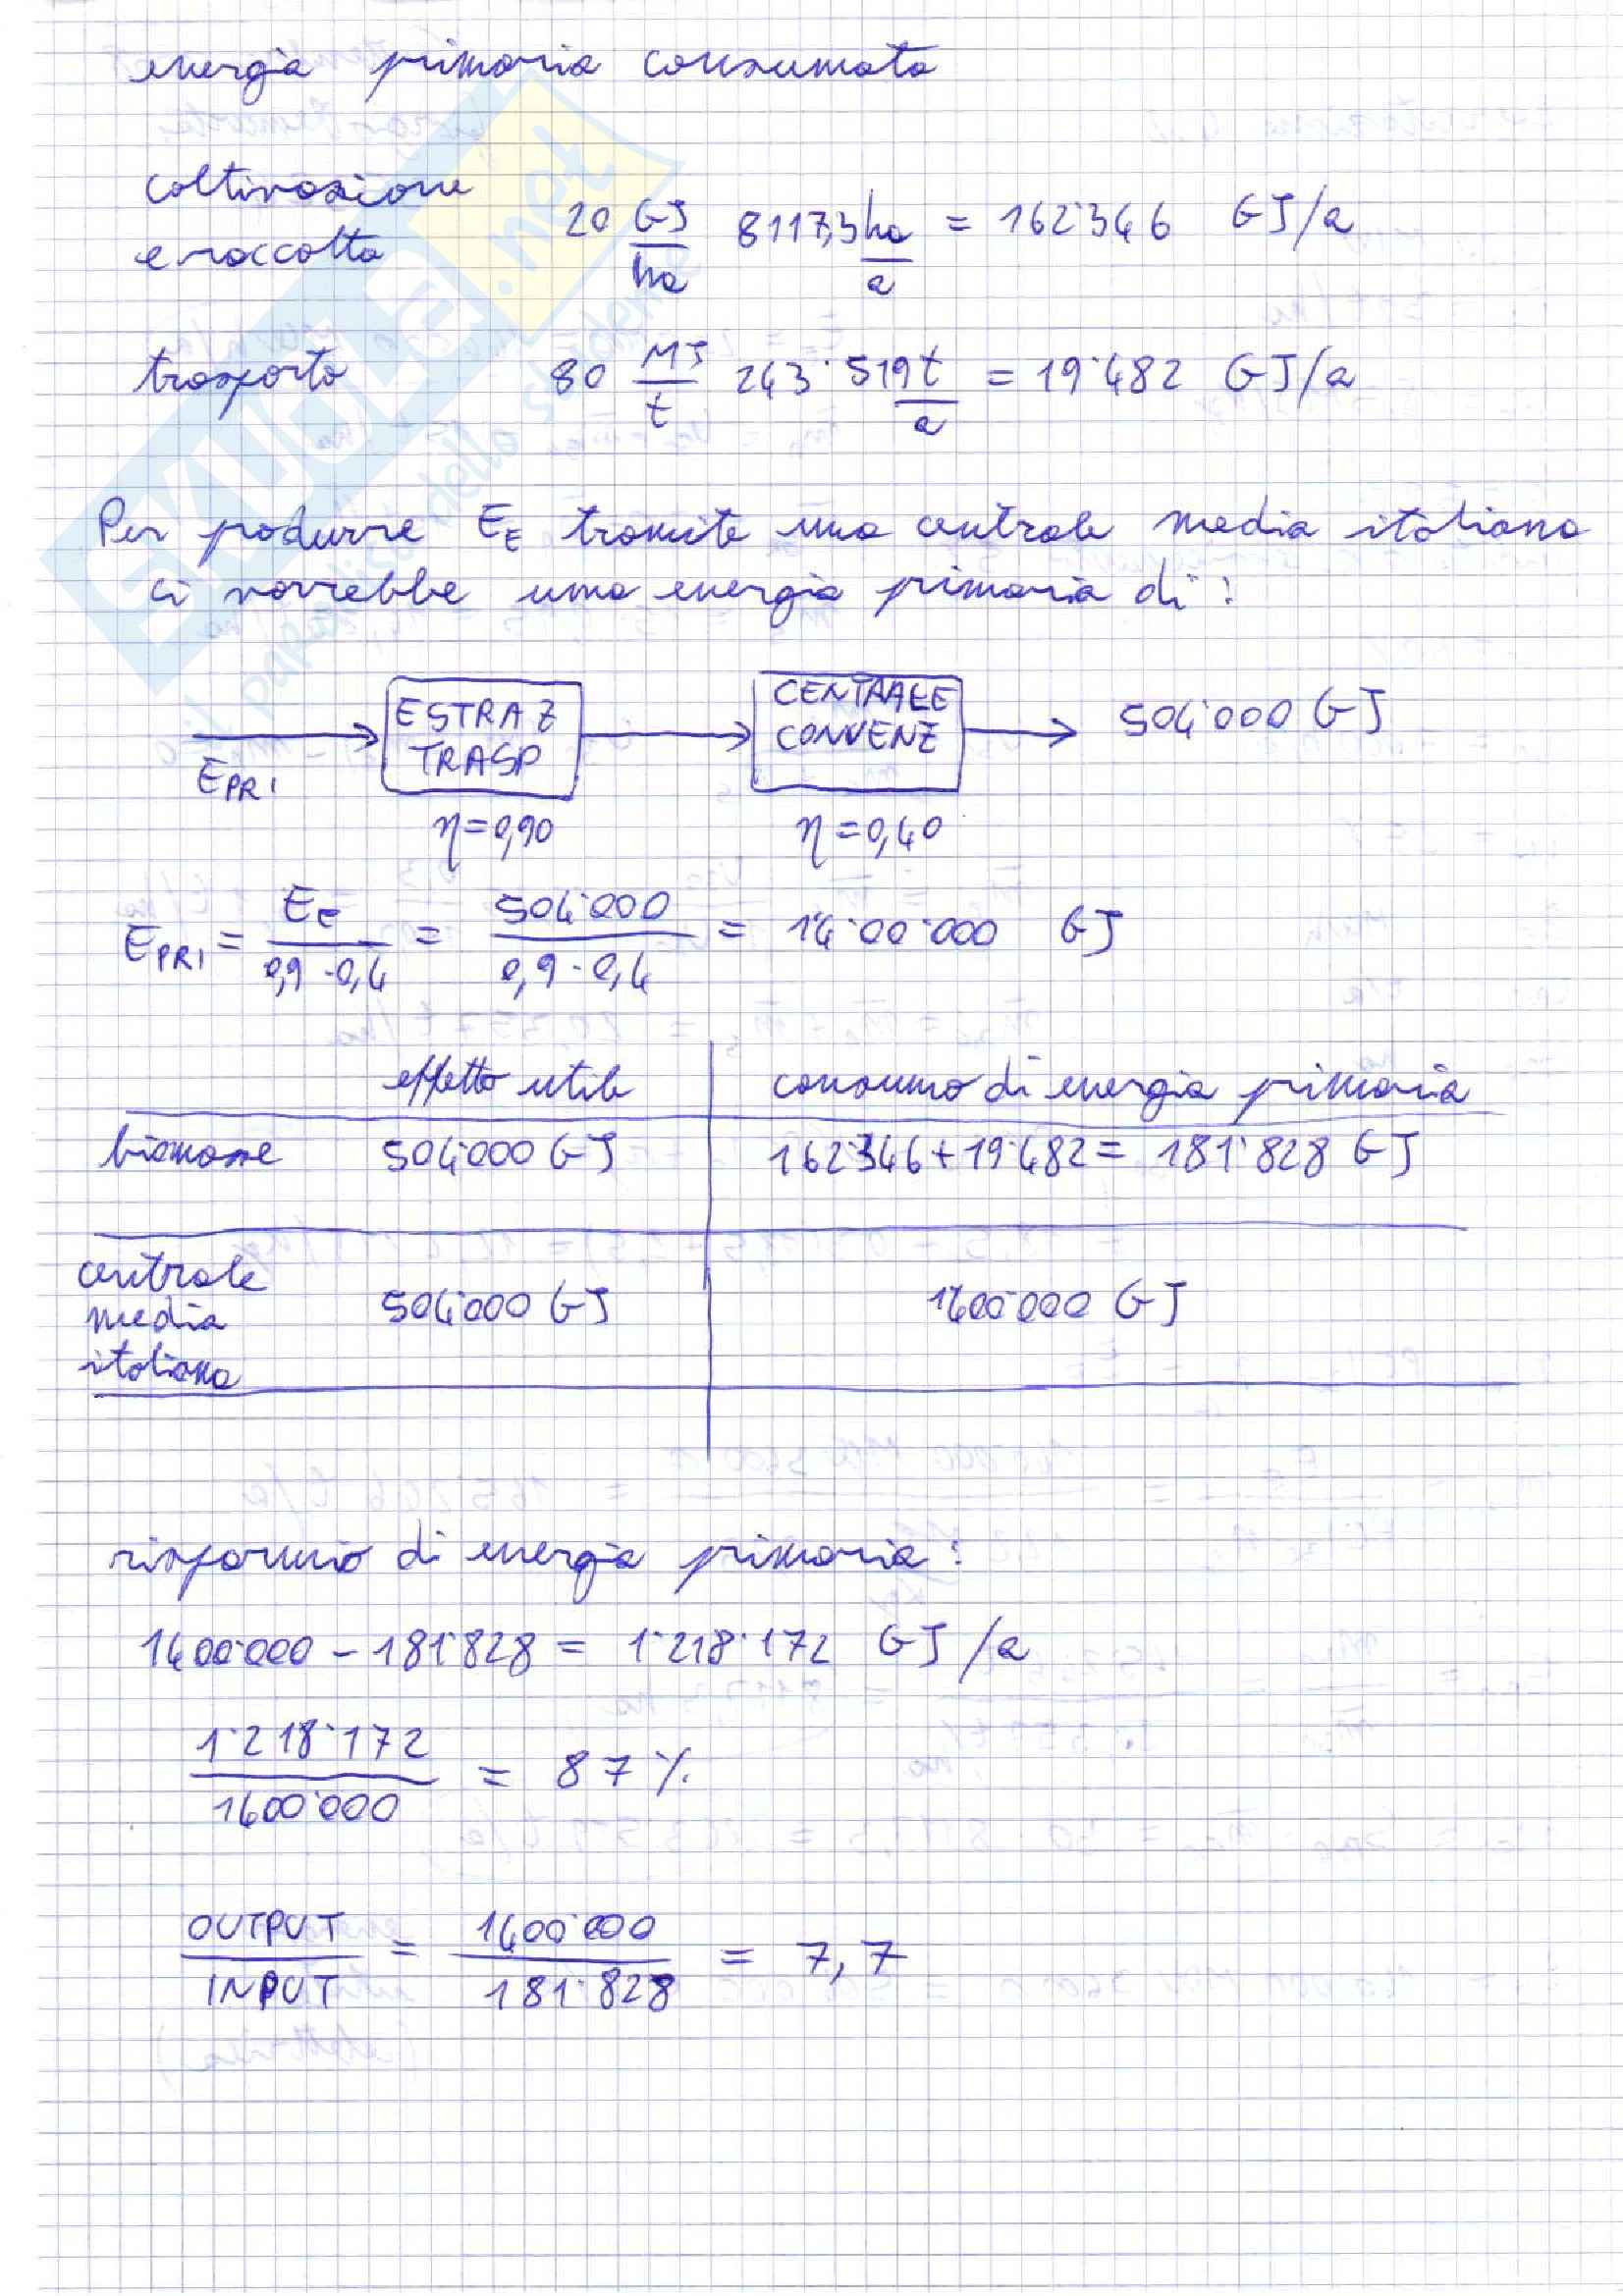 energia primaria consumata
coltivazione
e raccolta
20 GJ/ha 8117,3 ha/a = 162'346 GJ/a
trasporto 80 MJ/t 243'519 t/a = 19'482 GJ/a
Per produrre E_E tramite una centrale media italiana
ci vorrebbe una energia primaria di :
E_PRI → ESTRAZ TRASP → CENTRALE CONVENZ → 504'000 GJ
η=0,90 η=0,40
E_PRI = E_E / 0,9·0,4 = 504'000 / 0,9·0,4 = 14'00'000 GJ
effetto utile consumo di energia primaria
biomasse 504'000 GJ 162'346+19'482= 181'828 GJ
centrale
media
italiana
504'000 GJ 1400'000 GJ
risparmio di energia primaria :
1400'000 - 181'828 = 1'218'172 GJ/a
1'218'172 / 1400'000 = 87%
OUTPUT / INPUT = 1400'000 / 181'828 = 7,7
SKUOLA.net
il paradiso dello studente